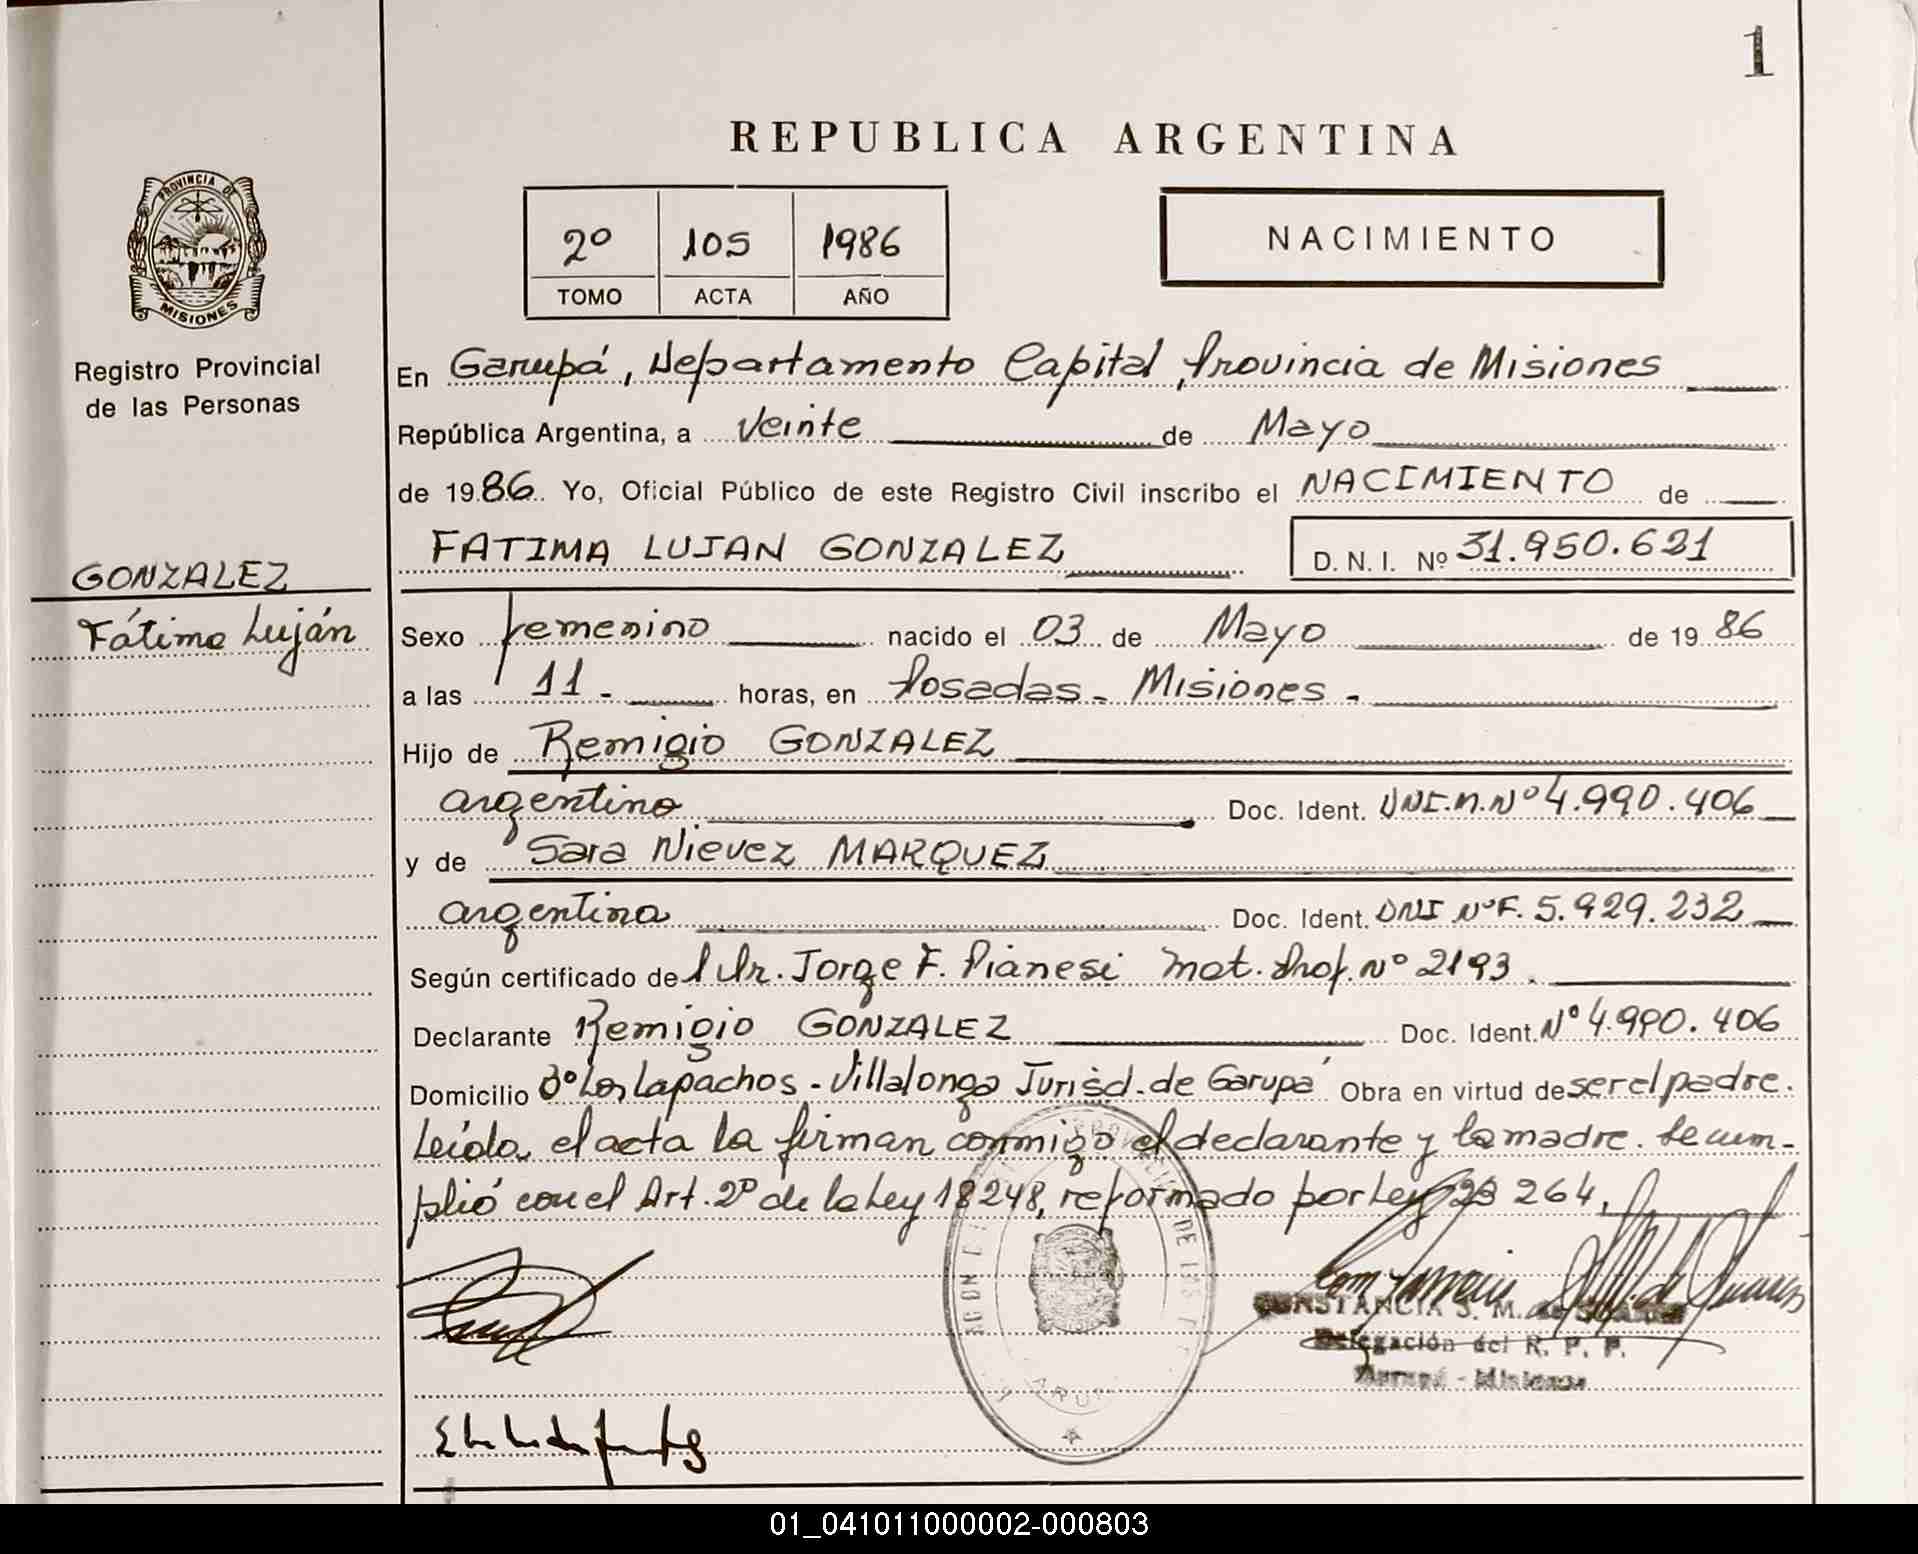 1
REPUBLICA ARGENTINA
PROVINCIA DE
MISIONES
Registro Provincial
de las Personas
2º 105 1986
TOMO ACTA AÑO
NACIMIENTO
En Garupá, Departamento Capital, Provincia de Misiones
República Argentina, a Veinte de Mayo
de 1986 Yo, Oficial Público de este Registro Civil inscribo el NACIMIENTO de
FATIMA LUJAN GONZALEZ D. N. I. Nº 31.950.621
GONZALEZ
Fátima Luján
Sexo femenino nacido el 03 de Mayo de 1986
a las 11.- horas, en Posadas - Misiones -
Hijo de Remigio GONZALEZ
argentino Doc. Ident. DNI.M.Nº 4.990.406
y de Sara Nievez MARQUEZ
argentina Doc. Ident. DNI Nº F. 5.929.232
Según certificado de Dr. Jorge F. Pianesi Mat. Prof. Nº 2193.
Declarante Remigio GONZALEZ Doc. Ident. Nº 4.990.406
Domicilio Bº Los Lapachos - Villalonga Jurisd. de Garupá Obra en virtud de ser el padre.
Leída el acta la firman conmigo el declarante y la madre. Se cum-
plió con el Art. 2º de la Ley 18248, reformado por Ley 23 264.
CONSTANCIA S. M. de
Delegación del R. P. P.
Garupá - Misiones
01_041011000002-000803